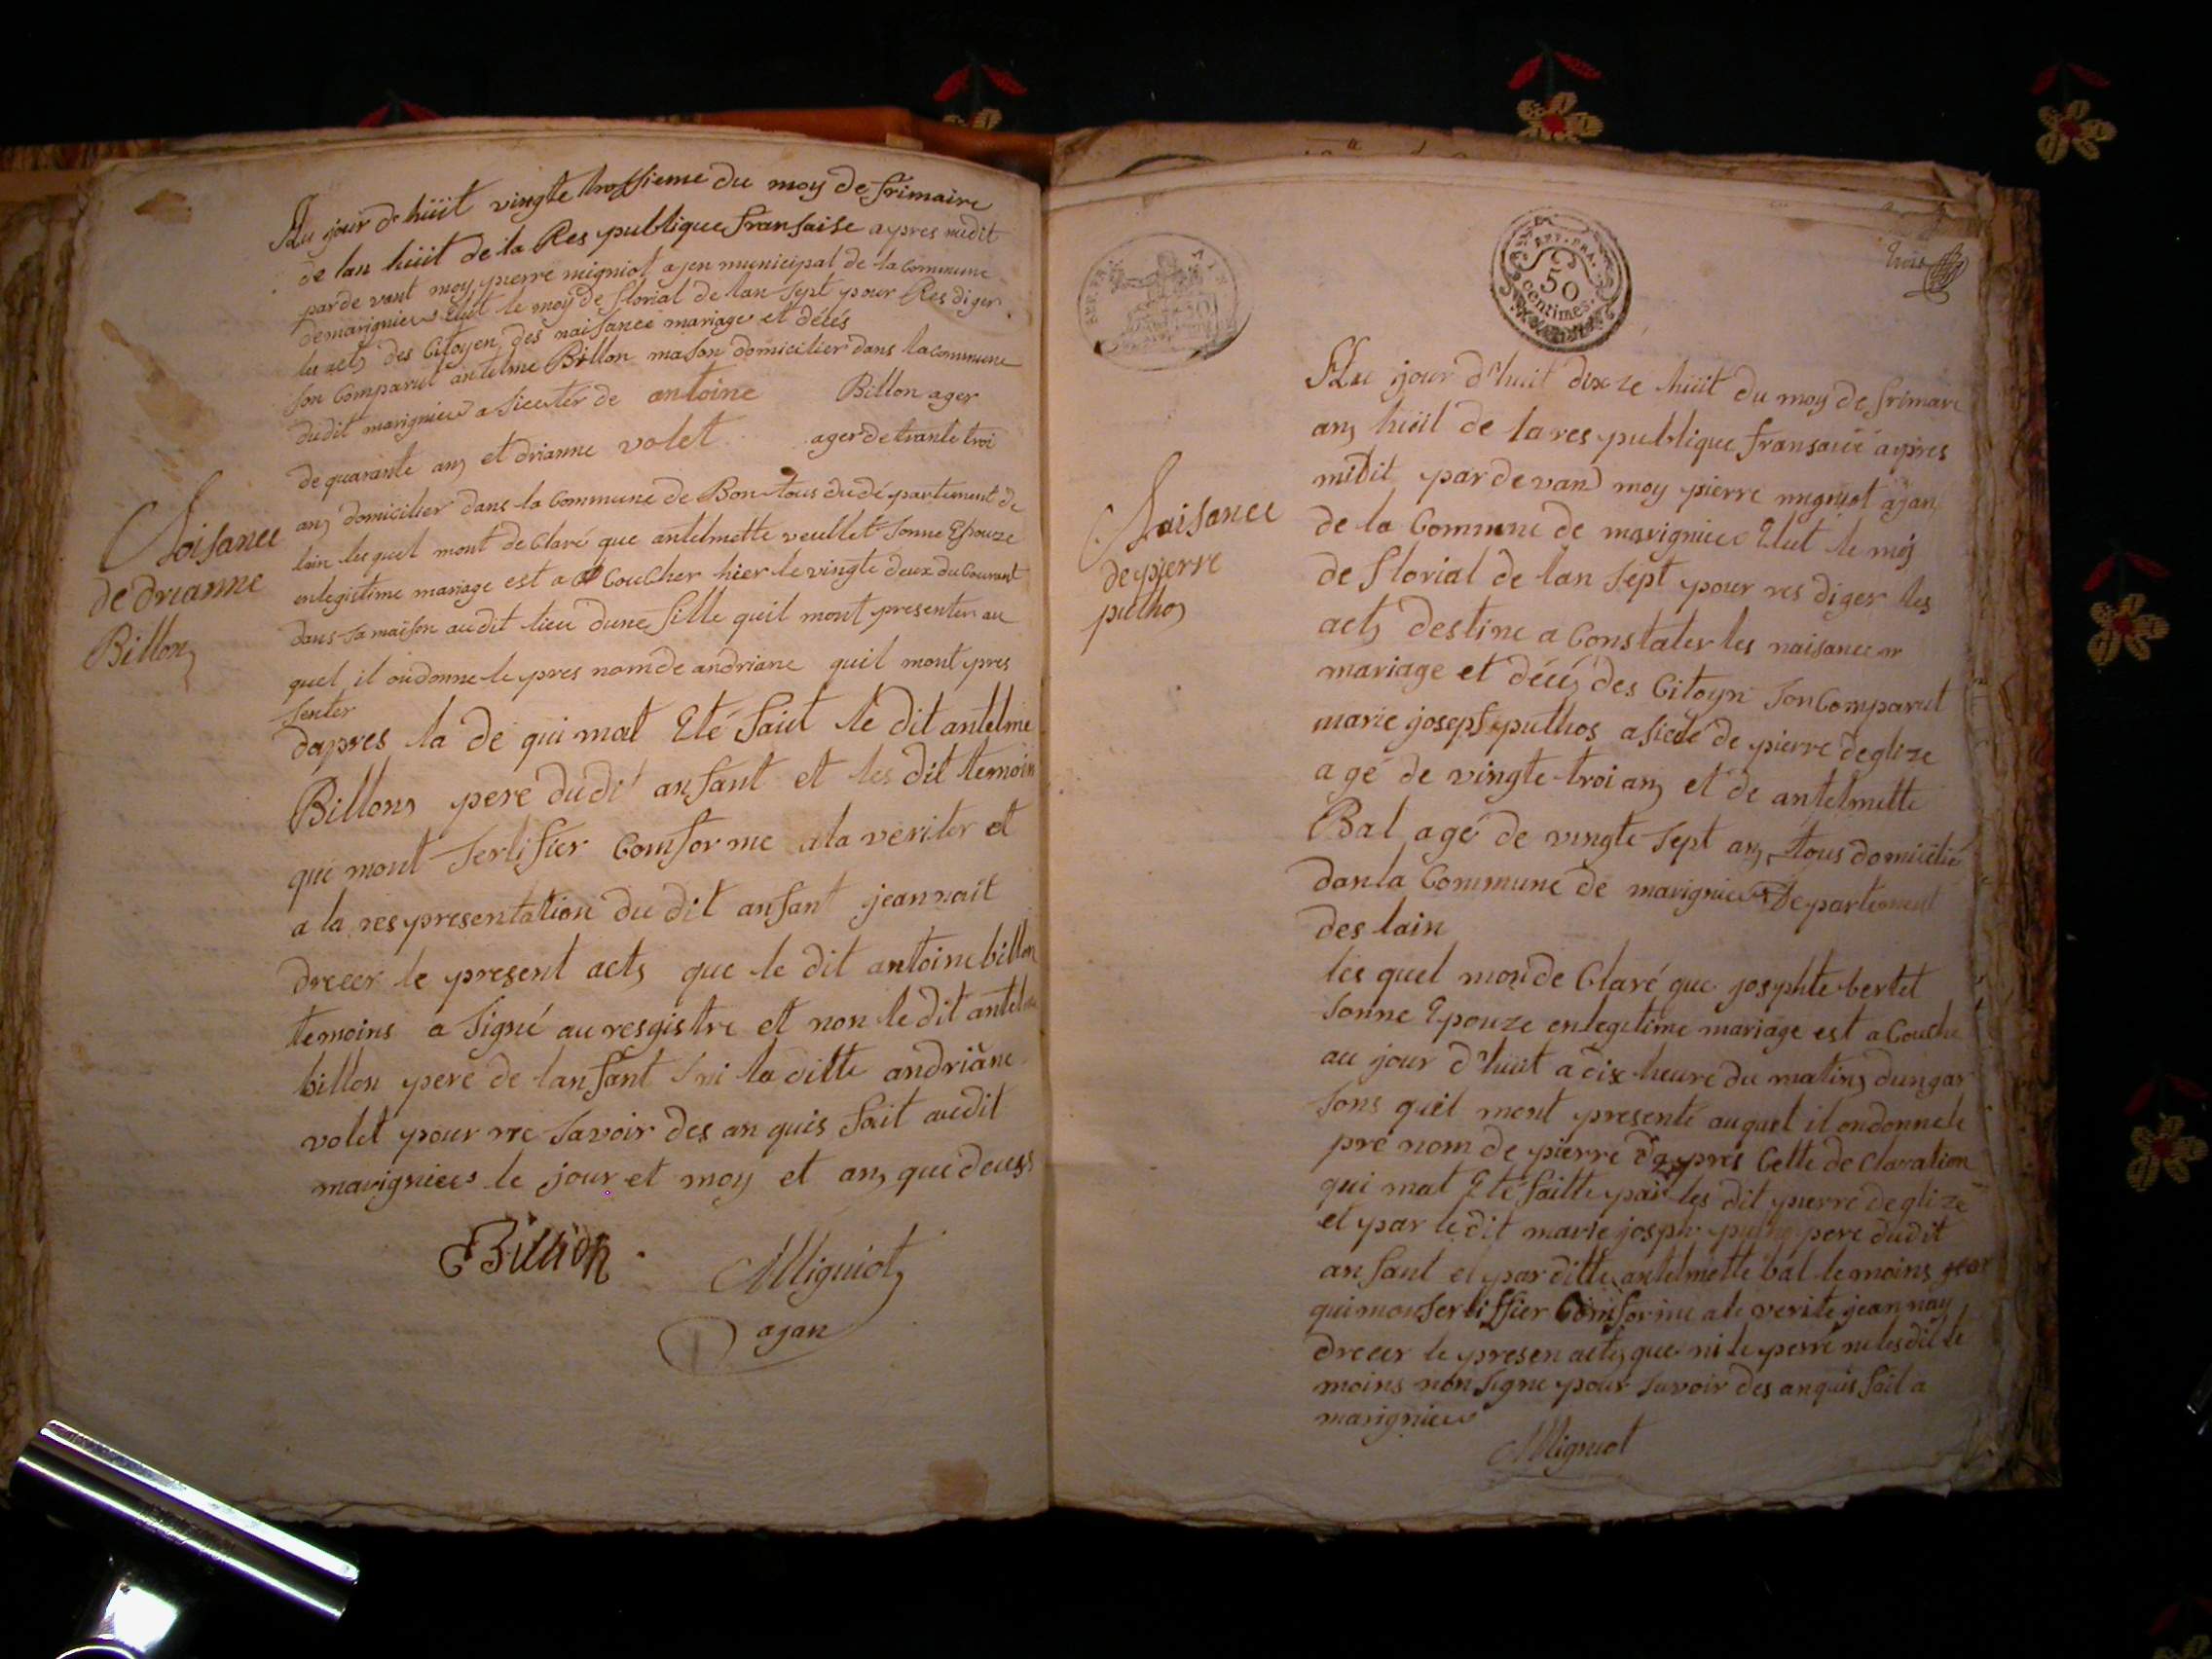 Au jour d'huit vingte troisieme du moy de frimaire
de lan huit de la Res publique fransaise apres midit
par de vant moy pierre migniot ajen municipal de la commune
de marignieu Elut le moy de florial de lan sept pour Res diger
les acts des Citoyen des naisance mariage et décés
son Comparut antelme Billon mason domicilier dans la commune
du dit marignieu a sister de antoine Billon ager
de quarante ans et drianne volet ager de trante troi
ans domicilier dans la Commune de Bon tous du dé partement de
lain les quel mont de Claré que antelmette veullet sonne Epouze
en legistime mariage est a CouCher hier le vingte deux du Courant
dans sa maison au dit lieu dune fille quil mont presenter au
quel il on donne le pres nom de andriane quil mont pres
senter
Noisance
de drianne
Billon
dapres la de qui mat Eté fait le dit antelme
Billons pere du dit anfant et les dit temoin
qui mont serlifier Comforme a la veriter et
a la respresentation du dit anfant jean nait
dreeer le present acts que le dit antoine billon
temoins a signé au resgistre et non le dit antelme
billon pere de lanfant ni la ditte andriane
volet pour ne savoir des an quis fait au dit
marignieu le jour et moy et ans que deuss
Billion Migniot
ajan
REP. FRA. AIN 50
REP. FRA. 50 Centimes.
Trois
Au jour d'huit dix ze huit du moy de frimare
an huit de la res publique fransaise apres
midit par de vand moy pierre migniot ajan
de la Commune de marignieu Elut le moj
de florial de lan sept pour res diger les
acts destine a Constater les naisance
mariage et décés des Citoyn son Comparut
marie joseph puthos a sisté de pierre deglize
agé de vingte troi ans et de antelmette
Bal agé de vingte sept ans tous domicilié
dan la Commune de marignieu De partement
des lain
Naisance
de pierre
puthos
les quel mon de Claré que josephte bertet
sonne Epouze en legitime mariage est a Couche
au jour d'huit a dix heure du matins dun gar
sons quil mont presenté au quel il on donne le
pre nom de pierre dapres Cette de Claration
qui mat Eté faitte par les dit pierre deglize
et par le dit marie joseph pere du dit
anfant et par ditte antelmette bal temoins
qui mon serliffier Comforme a le verite jean nay
dreeer le presen acts que ni le perre ni les dit te
moins non signe pour savoir des anquis fait a
marignieu
Migniot